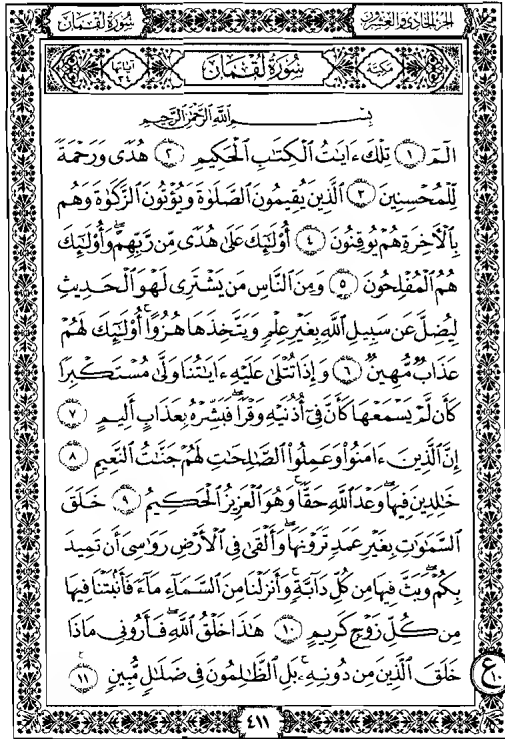 الجزء الحادي والعشرون
سورة لقمان
مكية
سورة لقمان
آياتها ٣٤
بِسْمِ اللَّهِ الرَّحْمَٰنِ الرَّحِيمِ
الٓمٓ ۝١ تِلْكَ ءَايَٰتُ ٱلْكِتَٰبِ ٱلْحَكِيمِ ۝٢ هُدًى وَرَحْمَةً
لِّلْمُحْسِنِينَ ۝٣ ٱلَّذِينَ يُقِيمُونَ ٱلصَّلَوٰةَ وَيُؤْتُونَ ٱلزَّكَوٰةَ وَهُم
بِٱلْأَخِرَةِ هُمْ يُوقِنُونَ ۝٤ أُو۟لَٰٓئِكَ عَلَىٰ هُدًى مِّن رَّبِّهِمْ ۖ وَأُو۟لَٰٓئِكَ
هُمُ ٱلْمُفْلِحُونَ ۝٥ وَمِنَ ٱلنَّاسِ مَن يَشْتَرِى لَهْوَ ٱلْحَدِيثِ
لِيُضِلَّ عَن سَبِيلِ ٱللَّهِ بِغَيْرِ عِلْمٍ وَيَتَّخِذَهَا هُزُوًا ۚ أُو۟لَٰٓئِكَ لَهُمْ
عَذَابٌ مُّهِينٌ ۝٦ وَإِذَا تُتْلَىٰ عَلَيْهِ ءَايَٰتُنَا وَلَّىٰ مُسْتَكْبِرًا
كَأَن لَّمْ يَسْمَعْهَا كَأَنَّ فِىٓ أُذُنَيْهِ وَقْرًا ۖ فَبَشِّرْهُ بِعَذَابٍ أَلِيمٍ ۝٧
إِنَّ ٱلَّذِينَ ءَامَنُوا۟ وَعَمِلُوا۟ ٱلصَّٰلِحَٰتِ لَهُمْ جَنَّٰتُ ٱلنَّعِيمِ ۝٨
خَٰلِدِينَ فِيهَا ۖ وَعْدَ ٱللَّهِ حَقًّا ۚ وَهُوَ ٱلْعَزِيزُ ٱلْحَكِيمُ ۝٩ خَلَقَ
ٱلسَّمَٰوَٰتِ بِغَيْرِ عَمَدٍ تَرَوْنَهَا ۖ وَأَلْقَىٰ فِى ٱلْأَرْضِ رَوَٰسِىَ أَن تَمِيدَ
بِكُمْ وَبَثَّ فِيهَا مِن كُلِّ دَآبَّةٍ ۚ وَأَنزَلْنَا مِنَ ٱلسَّمَآءِ مَآءً فَأَنۢبَتْنَا فِيهَا
مِن كُلِّ زَوْجٍ كَرِيمٍ ۝١٠ هَٰذَا خَلْقُ ٱللَّهِ فَأَرُونِى مَاذَا
خَلَقَ ٱلَّذِينَ مِن دُونِهِۦ ۚ بَلِ ٱلظَّٰلِمُونَ فِى ضَلَٰلٍ مُّبِينٍ ۝١١
ع ١٠
٤١١